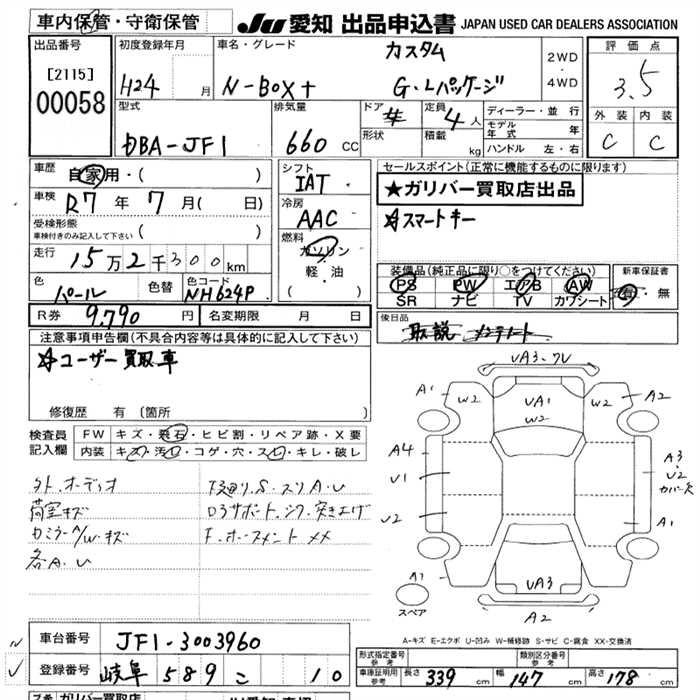 車内保管・守衛保管
JU 愛知 出品申込書 JAPAN USED CAR DEALERS ASSOCIATION
出品番号
[2115]
00058
初度登録年月
H24 月
車名・グレード
カスタム
N-BOX+ G・Lパッケージ
2WD
・
4WD
評価点
3.5
外装 内装
C C
型式
DBA-JF1
排気量
660 CC
ドア
形状
定員 4 人
積載 kg
ディーラー・並行
モデル年式 年
ハンドル 左・右
車歴 自家用・( )
車検 R7 年 7 月( 日)
受検形態
車検付きのみ記入して下さい ( )
走行 15万2千300 km
色 パール
色替
色コード NH624P
シフト
IAT
冷房
AAC
燃料
ガソリン
・
軽・油
( )
セールスポイント(正常に機能するものに限ります)
★ガリバー買取店出品
☆スマートキー
装備品(純正品に限り○をつけてください)
PS PW エアB AW
SR ナビ TV カワシート
新車保証書
有・無
R券 9,790 円
名変期限 月 日
後日品
取説 メンテノート
注意事項申告欄(不具合内容等は具体的に記入して下さい)
☆ユーザー買取車
修復歴 有 〔箇所 〕
検査員
記入欄
FW キズ・飛石・ヒビ割・リペア跡・X要
内装 キズ・汚れ・コゲ・穴・スレ・キレ・破レ
外.オーディオ
荷室キズ
カミラーA/W.キズ
各A.U
下廻リ.S.スリA.U
ロアサポート.ジク.突き上ゲ
F.ホースメント XX
UA3・フU
A1
W2
UA1
W2
W2
A2
A4
U1
U2
A3
・
U2
カバー欠
A1
A1
スペア
UA3
A2
A-キズ E-エクボ U-凹み W-補修跡 S-サビ C-腐食 XX-交換済
車台番号 JF1-3003960
登録番号 岐阜 589 こ 10
形式指定番号
参考
類別区分番号
参考
車庫証明用
参考
長さ 339 cm 幅 147 cm 高さ 178 cm
ガリバー買取店